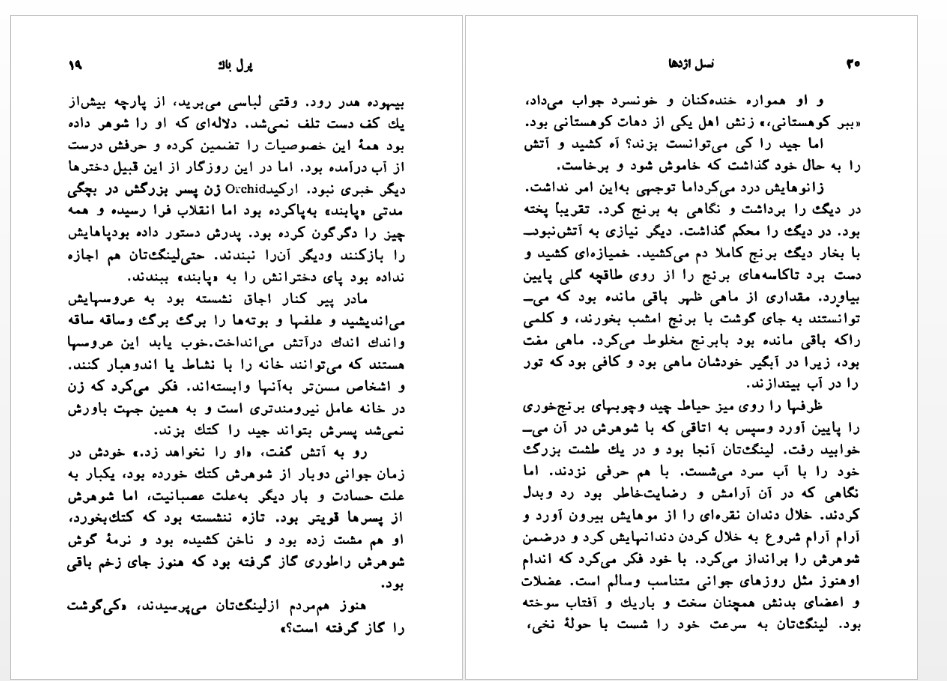 پرل باك ۱۹
بیهوده هدر رود. وقتی لباسی می‌برید، از پارچه بیش‌از
یك کف دست تلف نمی‌شد. دلاله‌ای که او را شوهر داده
بود همهٔ این خصوصیات را تضمین کرده و حرفش درست
از آب درآمده بود. اما در این روزگار از این قبیل دخترها
دیگر خبری نبود. ارکیدOrchid زن پسر بزرگش در بچگی
مدتی «پابند» به‌پاکرده بود اما انقلاب فرا رسیده و همه
چیز را دگرگون کرده بود. پدرش دستور داده بودپاهایش
را بازکنند ودیگر آن‌را نبندند. حتی‌لینگ‌تان هم اجازه
نداده بود پای دخترانش را به «پابند» ببندند.
مادر پیر کنار اجاق نشسته بود به عروسهایش
می‌اندیشید و علفها و بوته‌ها را برگ برگ وساقه ساقه
واندك اندك درآتش می‌انداخت.خوب یابد این عروسها
هستند که می‌توانند خانه را با نشاط یا اندوهبار کنند.
و اشخاص مسن‌تر به‌آنها وابسته‌اند. فکر می‌کرد که زن
در خانه عامل نیرومندتری است و به همین جهت باورش
نمی‌شد پسرش بتواند جید را کتك بزند.
رو به آتش گفت، «او را نخواهد زد.» خودش در
زمان جوانی دوبار از شوهرش کتك خورده بود، یکبار به
علت حسادت و بار دیگر به‌علت عصبانیت، اما شوهرش
از پسرها قویتر بود. تازه ننشسته بود که کتك‌بخورد،
او هم مشت زده بود و ناخن کشیده بود و نرمهٔ گوش
شوهرش راطوری گاز گرفته بود که هنوز جای زخم باقی
بود.
هنوز هم‌مردم ازلینگ‌تان می‌پرسیدند، «کی‌گوشت
را گاز گرفته است؟»
۲۰ نسل اژدها
و او همواره خنده‌کنان و خونسرد جواب می‌داد،
«ببر کوهستانی،» زنش اهل یکی از دهات کوهستانی بود.
اما جید را کی می‌توانست بزند؟ آه کشید و آتش
را به حال خود گذاشت که خاموش شود و برخاست.
زانوهایش درد می‌کرداما توجهی به‌این امر نداشت.
در دیگ را برداشت و نگاهی به برنج کرد. تقریباً پخته
بود. در دیگ را محکم گذاشت. دیگر نیازی به آتش‌نبودــ
با بخار دیگ برنج کاملا دم می‌کشید. خمیازه‌ای کشید و
دست برد تاکاسه‌های برنج را از روی طاقچه گلی پایین
بیاورد. مقداری از ماهی ظهر باقی مانده بود که می‌ــ
توانستند به جای گوشت با برنج امشب بخورند، و کلمی
راکه باقی مانده بود بابرنج مخلوط می‌کرد. ماهی مفت
بود، زیرا در آبگیر خودشان ماهی بود و کافی بود که تور
را در آب بیندازند.
ظرفها را روی میز حیاط چید وچوبهای برنج‌خوری
را پایین آورد وسپس به اتاقی که با شوهرش در آن می‌ــ
خوابید رفت. لینگ‌تان آنجا بود و در یك طشت بزرگ
خود را با آب سرد می‌شست. با هم حرفی نزدند. اما
نگاهی که در آن آرامش و رضایت‌خاطر بود رد وبدل
کردند. خلال دندان نقره‌ای را از موهایش بیرون آورد و
آرام آرام شروع به خلال کردن دندانهایش کرد و درضمن
شوهرش را برانداز می‌کرد. با خود فکر می‌کرد که اندام
اوهنوز مثل روزهای جوانی متناسب وسالم است. عضلات
و اعضای بدنش همچنان سخت و باریك و آفتاب سوخته
بود. لینگ‌تان به سرعت خود را شست با حولهٔ نخی،